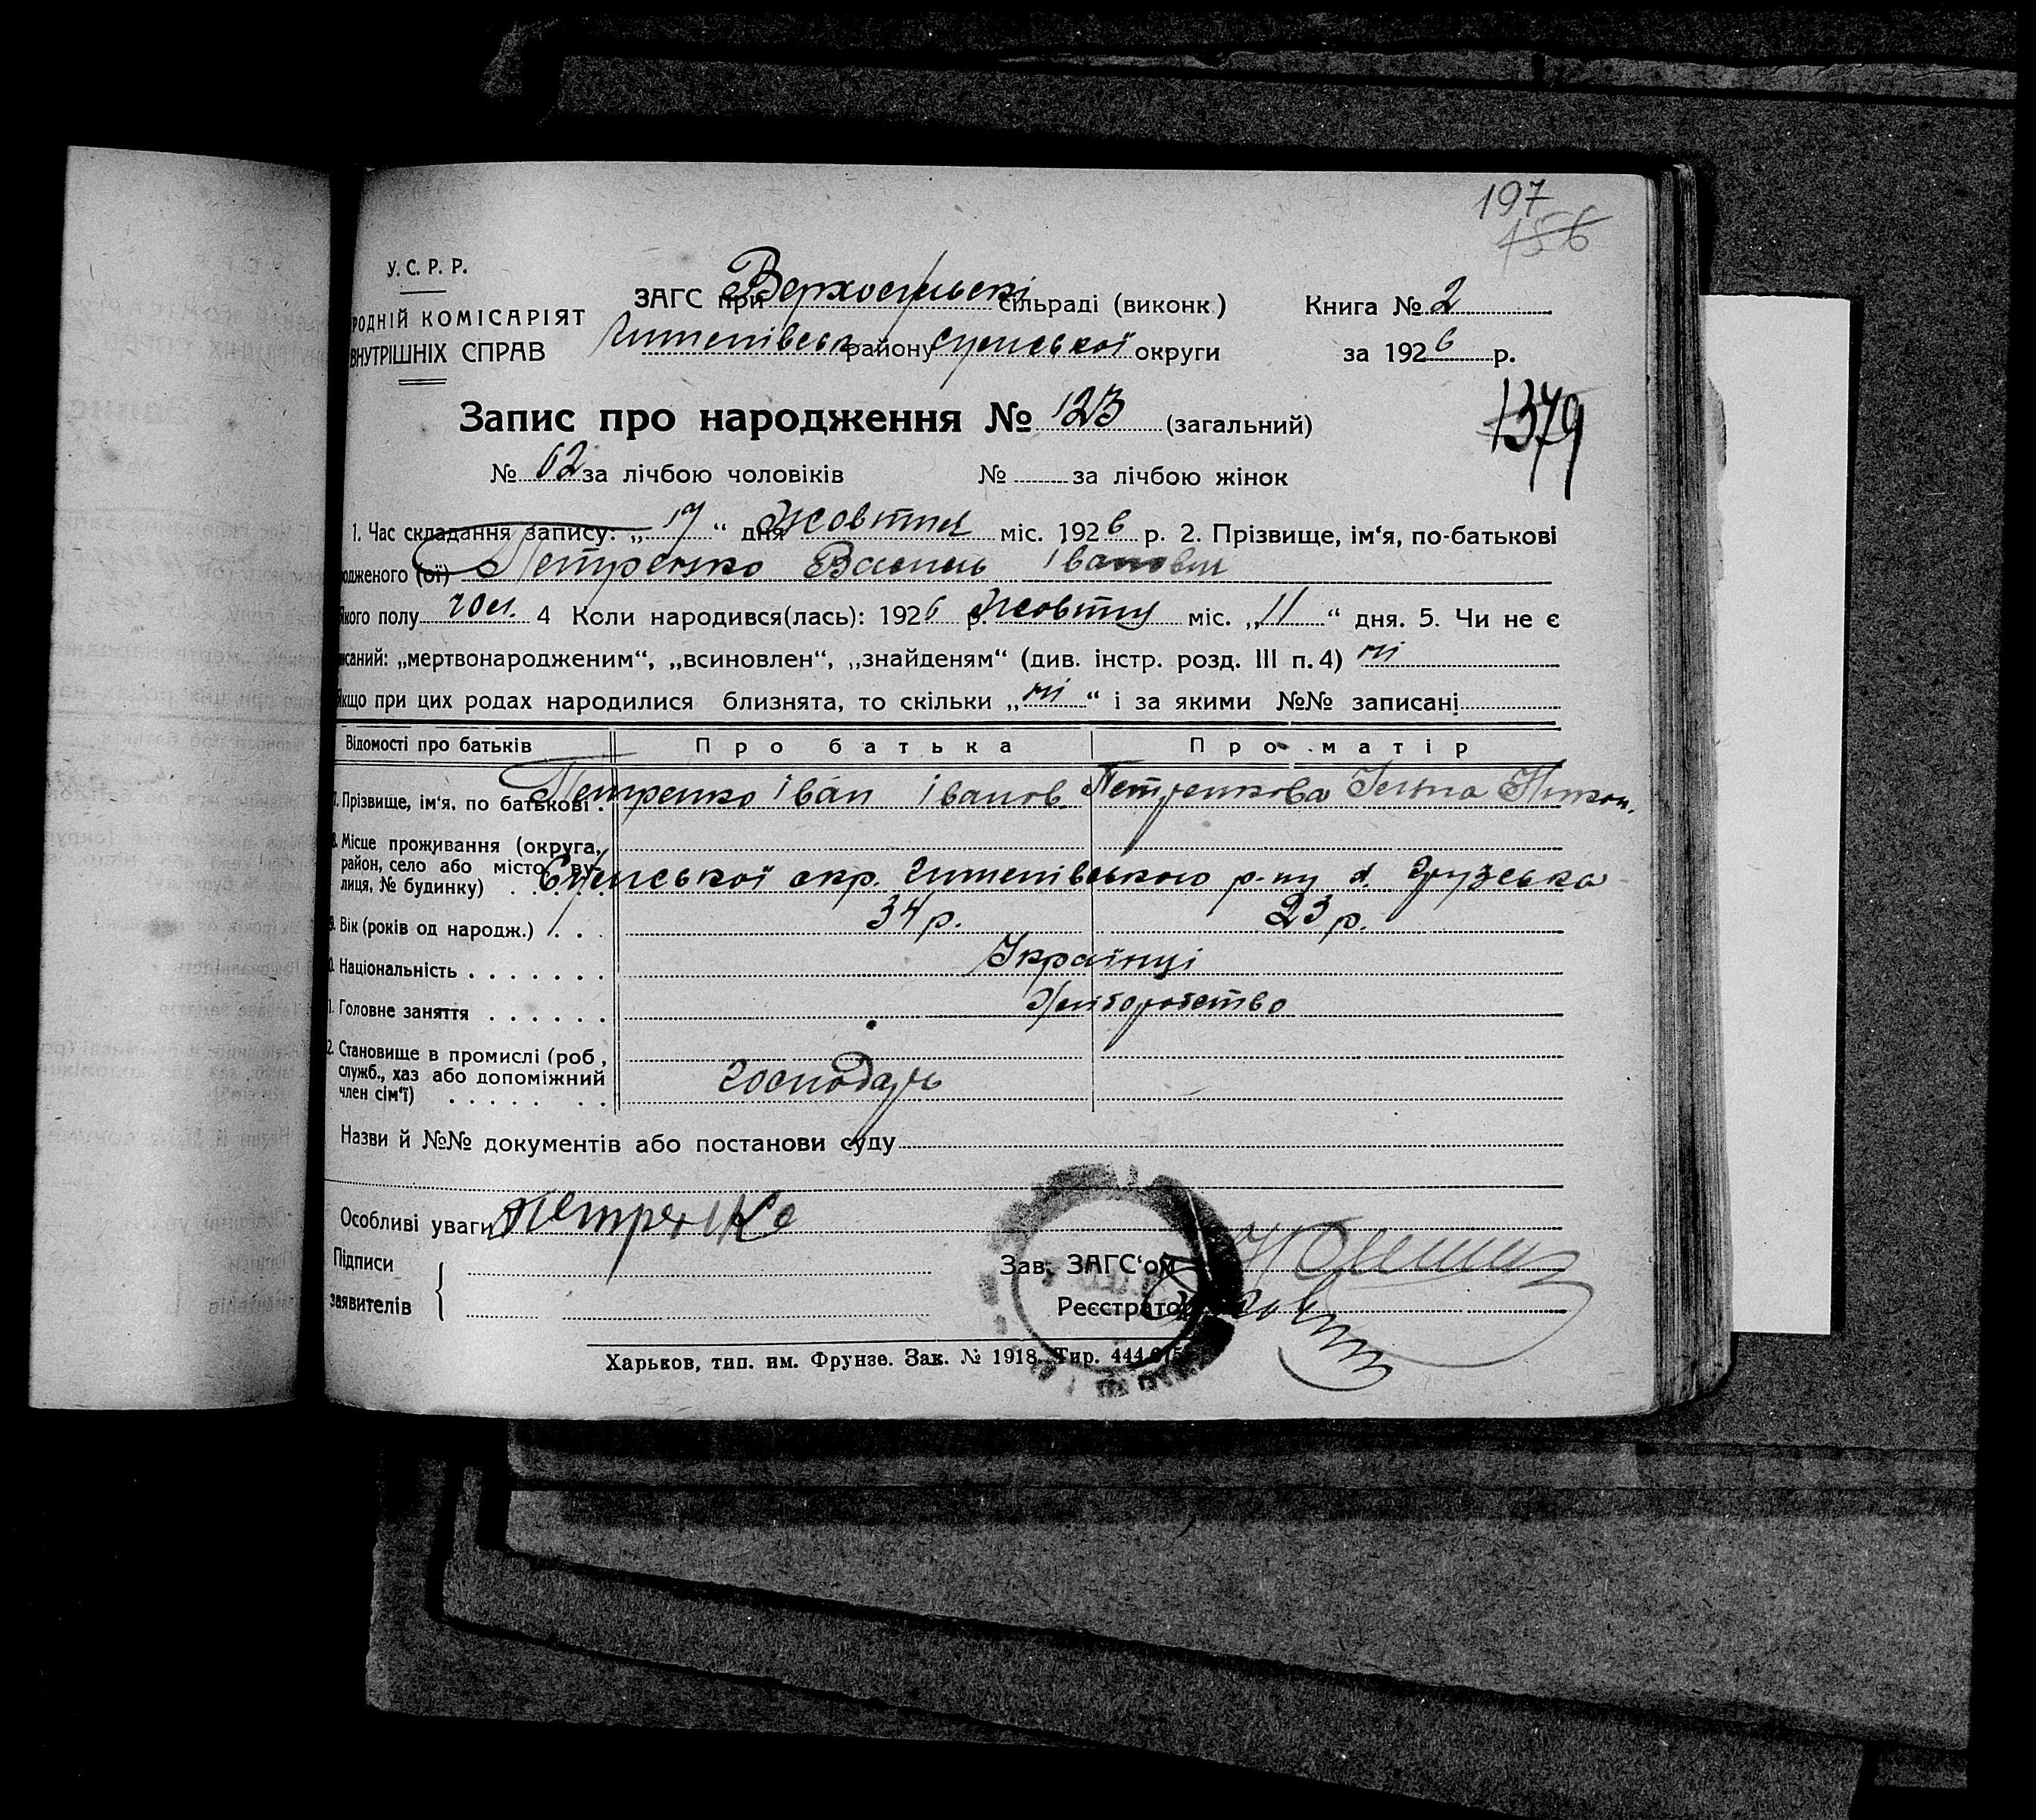 197
156
У. С. Р. Р.
РОДНІЙ КОМІСАРІЯТ
ВНУТРІШНІХ СПРАВ
ЗАГС при Верхосульскі сільраді (виконк.) Книга № 2
Штепівськ району Сумської округи за 1926 р.
1379
Запис про народження № 123 (загальний)
№ 62 за лічбою чоловіків № за лічбою жінок
1. Час складання запису: „17“ дня жовтня міс. 1926 р. 2. Прізвище, ім‘я, по-батькові
одженого (ої) Петренко Василь Іванович
якого полу чол. 4 Коли народився(лась): 1926 р. жовтня міс. „11“ дня. 5. Чи не є
исаний: „мертвонародженим“, „всиновлен“, „знайденям“ (див. інстр. розд. III п. 4) ні
якщо при цих родах народилися близнята, то скільки „ні“ і за якими №№ записані
Відомості про батьків Про батька Про матір
7. Прізвище, ім‘я, по батькові. Петренко Іван Іванов. Петренкова Никон.
8. Місце проживання (округа,
район, село або місто, ву-
лиця, № будинку) Сумської окр. Штепівського р-ну Грузська
9. Вік (років од народж.) 34 р. 23 р.
0. Національність Українці
1. Головне заняття Хліборобство
2. Становище в промислі (роб.,
служб., хаз або допоміжний
член сім‘ї) господарь
Назви й №№ документів або постанови суду
Особливі уваги Петренко
Підписи
заявителів
Зав. ЗАГС‘ом
Реєстратор
Харьков, тип. им. Фрунзе. Зак. № 1918. Тир. 444